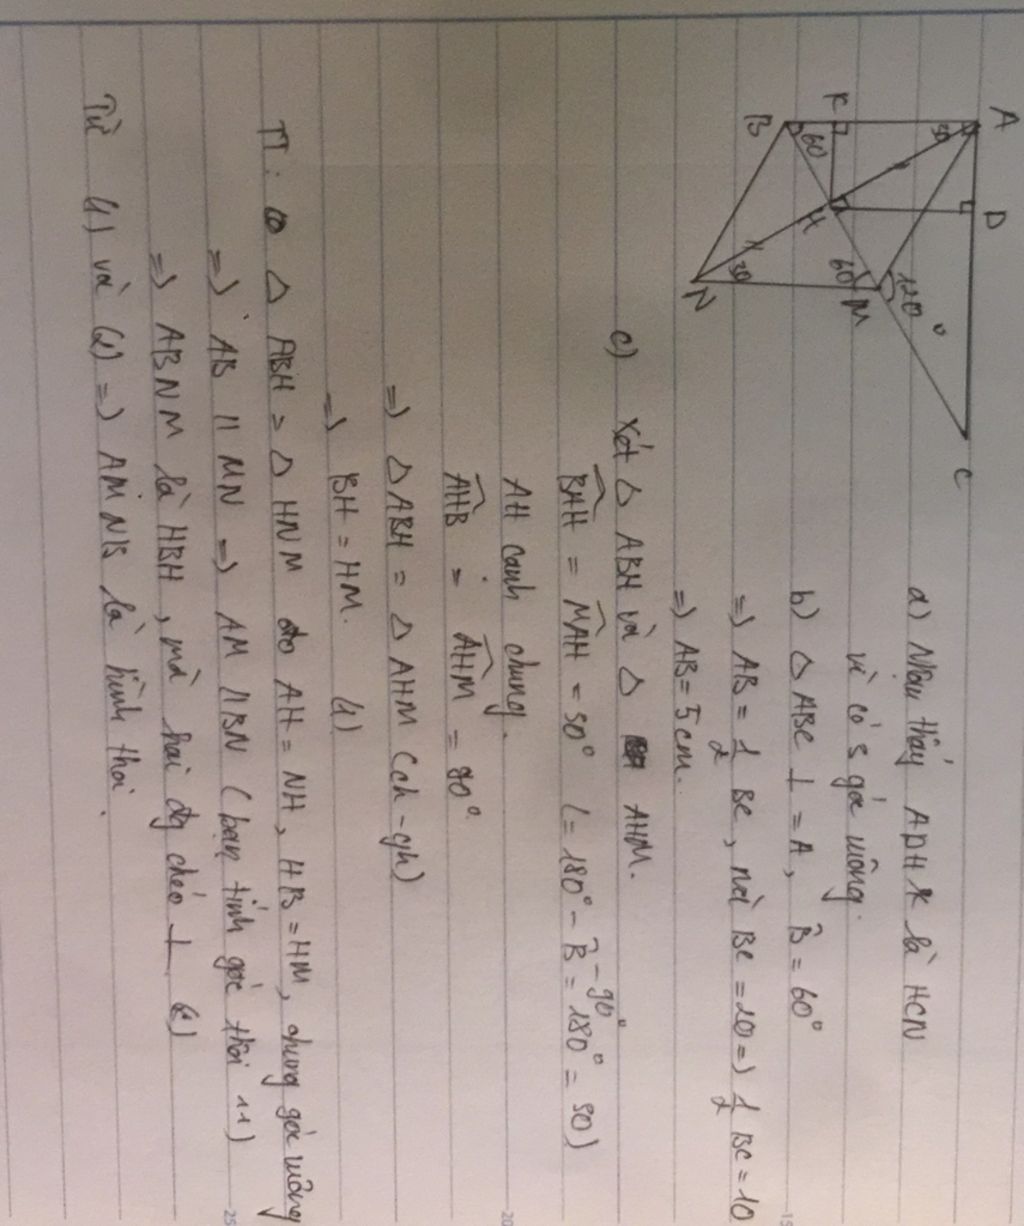 A
D
C
K
30
B
60
H
60
M
120°
30
N
a) Nhận thấy ADHK là HCN
vì có 3 góc vuông.
b) △ ABC ⊥ = A, B̂ = 60°
=) AB = 1/2 BC, mà BC = 10 =) 1/2 BC = 10
=) AB = 5cm.
c) Xét △ ABH và △ AHM.
BAH = MAH = 30° (= 180° - B̂ - 90° = 180° = 30)
AH cạnh chung.
AHB = AHM = 90°.
=) △ ABH = △ AHM (ch - gn)
=) BH = HM. (1)
TT: △ ABH = △ HNM do AH = NH, HB = HM, chung góc vuông
=) AB // MN =) AM // BN (bạn tính góc thôi ^^)
=) ABNM là HBH, mà hai đg chéo ⊥ (2)
Từ (1) và (2) =) AMNB là hình thoi.
15
20
25